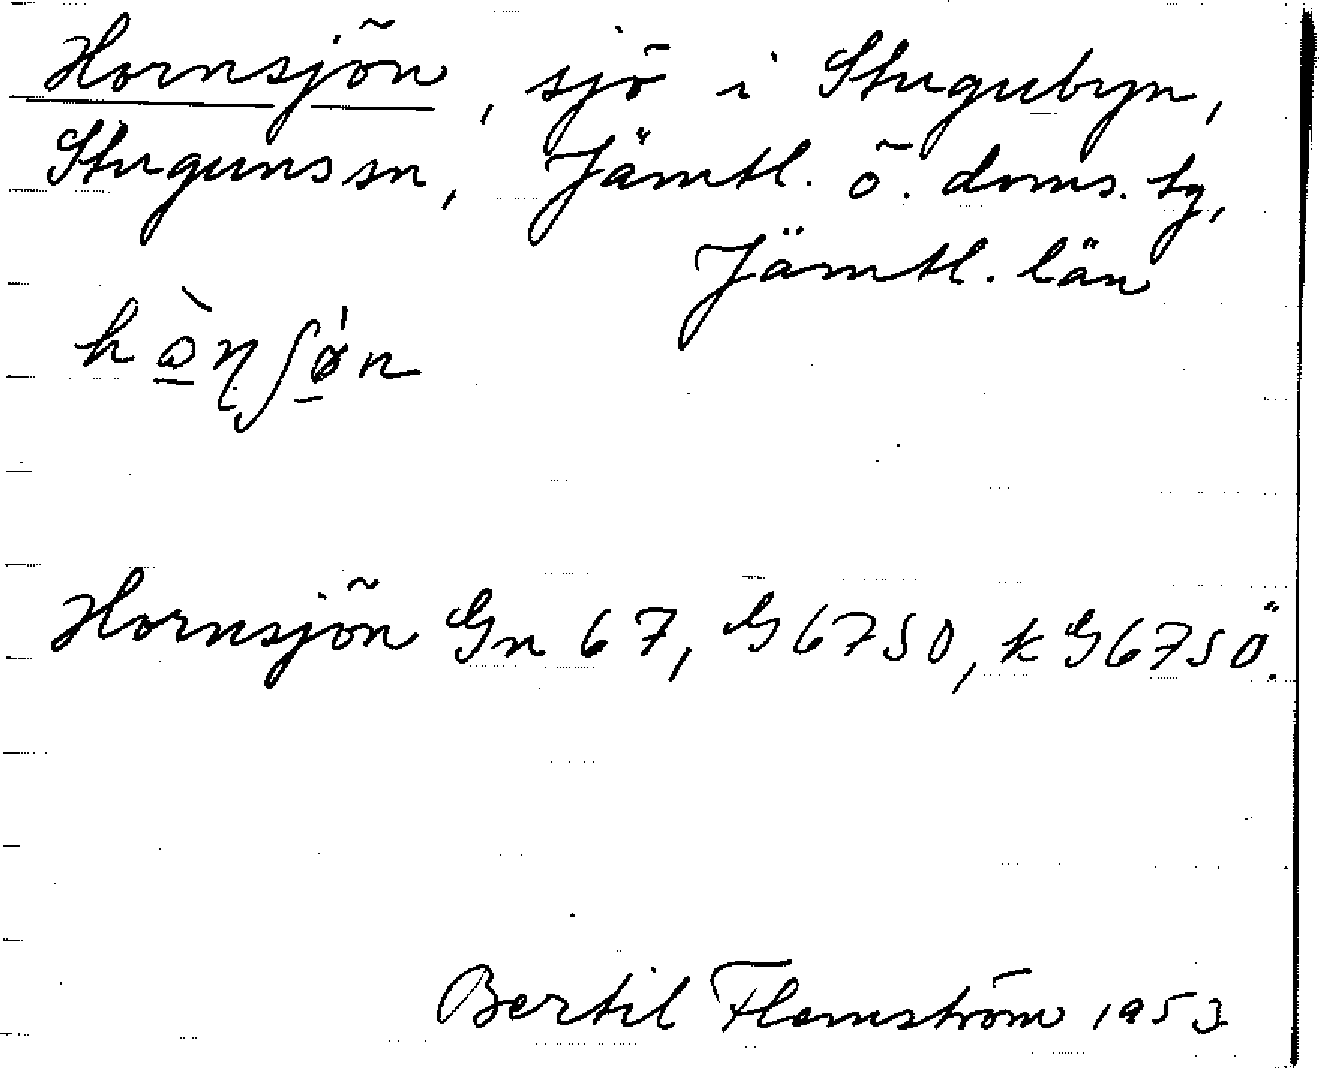 Hornsjön, sjö i Stugubyn,
Stuguns sn, Jämtl. ö. doms. tg,
Jämtl. län
hɔ̠̀ɳʃø̠̍n
Hornsjön Gn 67, G6750, kG6750Ö.
Bertil Flemström 1953